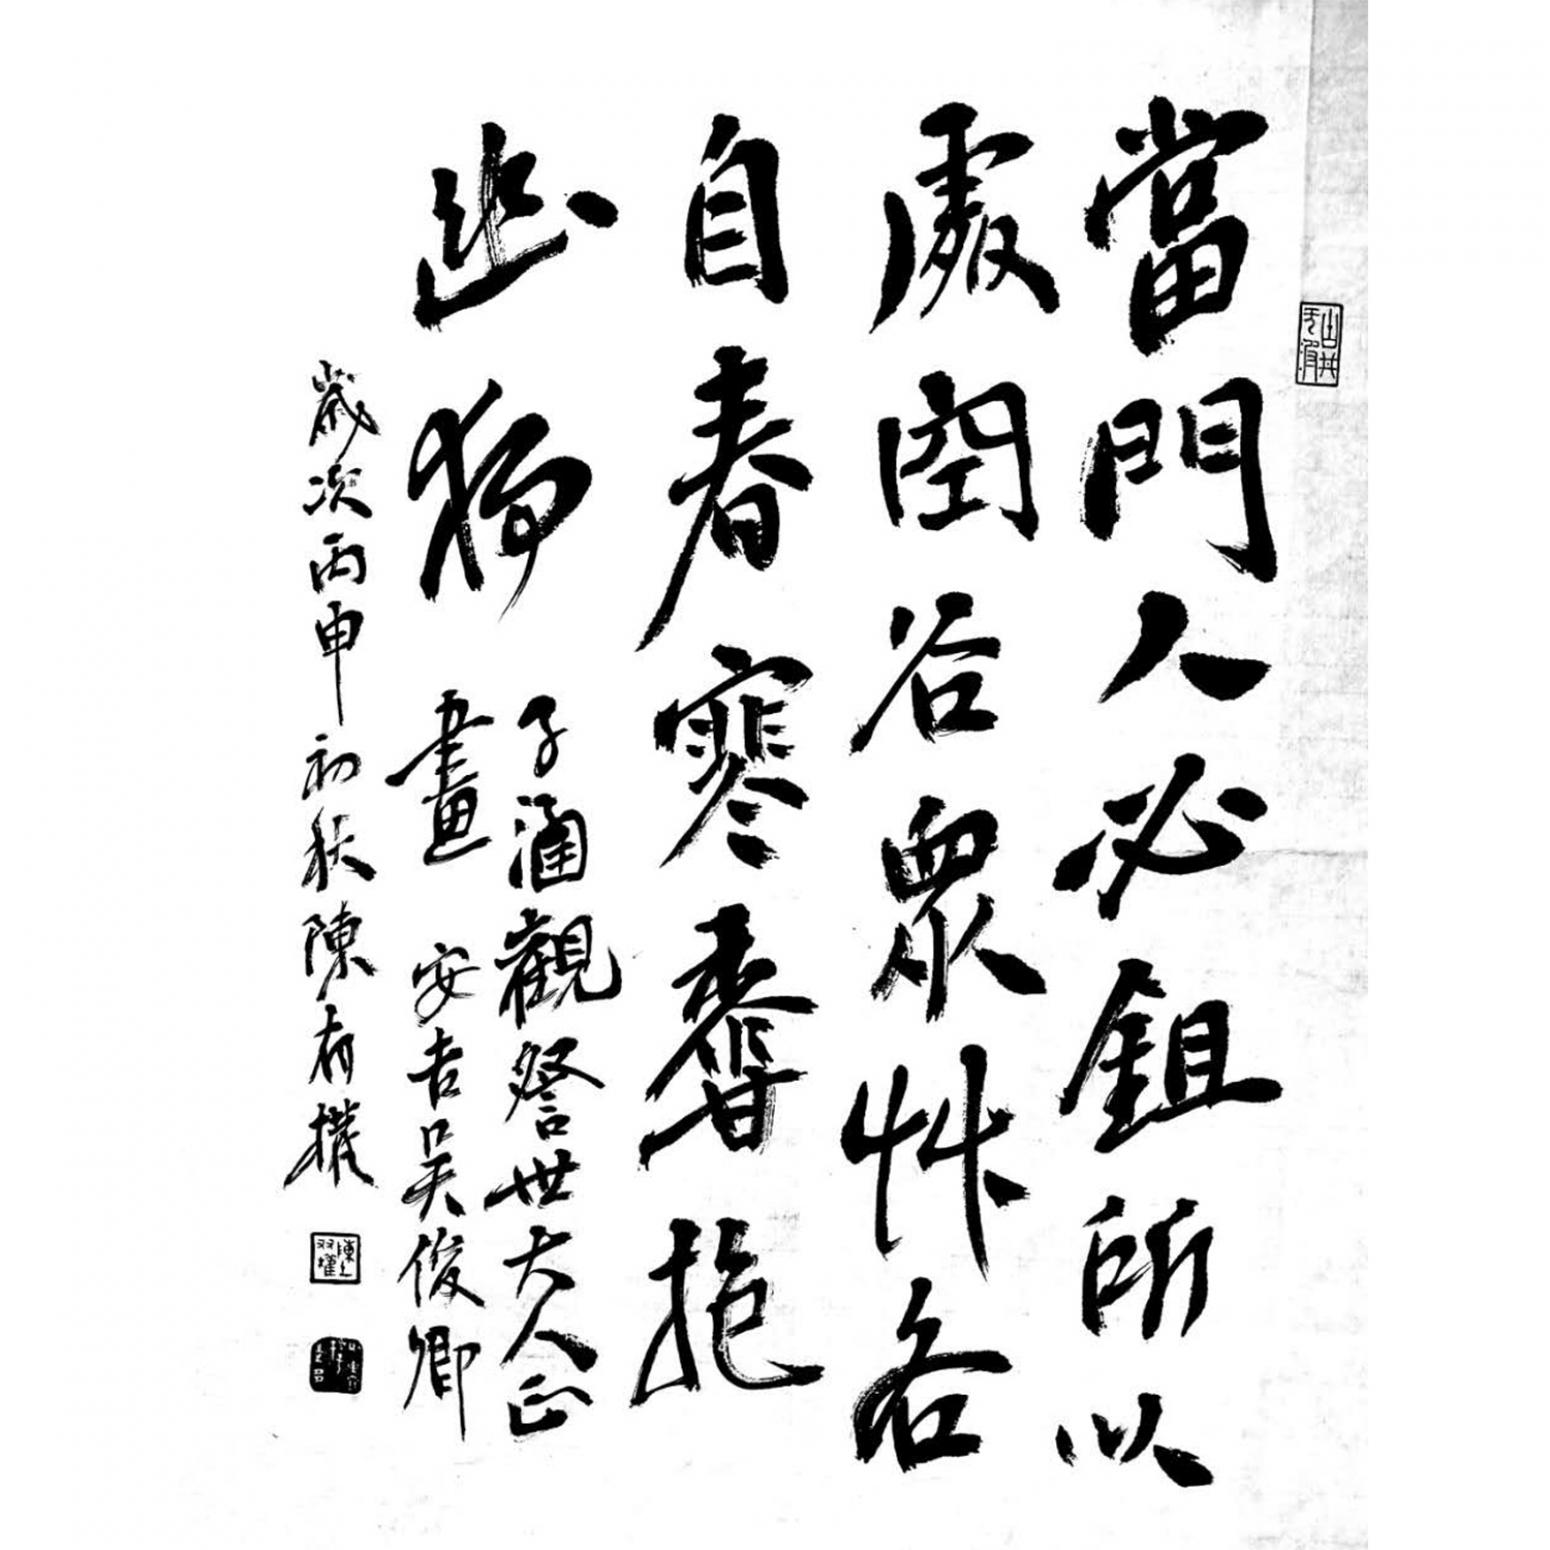 當門人必鉏所以
處空谷眾艸各
自春寒香抱
幽獨
子涵觀詧世大人正
畫 安吉吳俊卿
歲次丙申初秋陳有